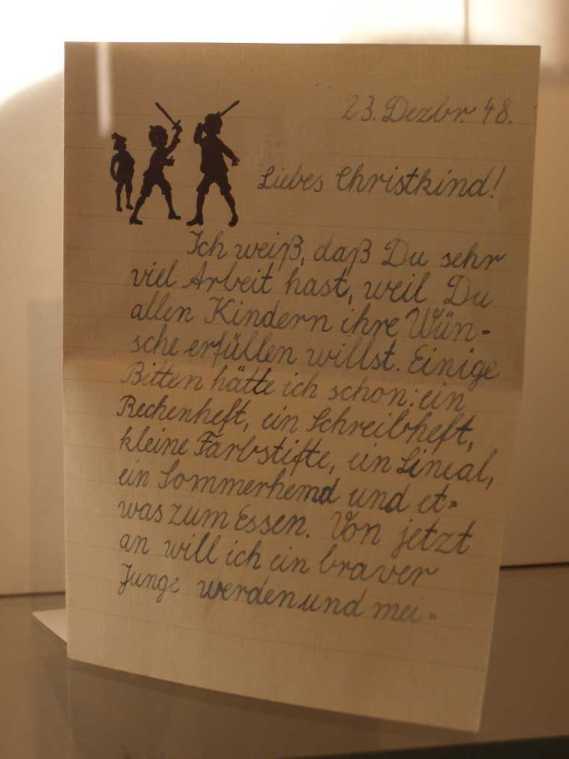 23. Dezbr. 48.
Liebes Christkind!
Ich weiß, daß Du sehr
viel Arbeit hast, weil Du
allen Kindern ihre Wün-
sche erfüllen willst. Einige
Bitten hätte ich schon: ein
Rechenheft, ein Schreibheft,
kleine Farbstifte, ein Lineal,
ein Sommerhemd und et-
was zum Essen. Von jetzt
an will ich ein braver
Junge werden und mei-